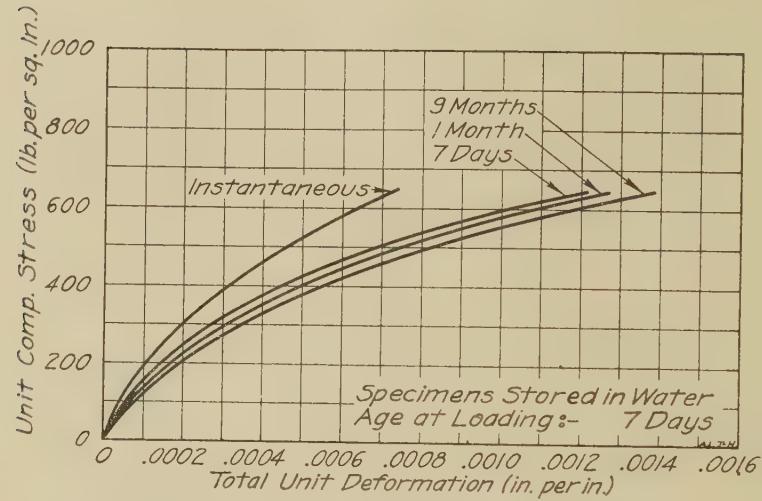 Unit Comp. Stress (lb. per sq. in.)
1000
800
600
400
200
0
9 Months
1 Month
7 Days
Instantaneous
Specimens Stored in Water
Age at Loading:- 7 Days
0 .0002 .0004 .0006 .0008 .0010 .0012 .0014 .0016
Total Unit Deformation (in. per in.)